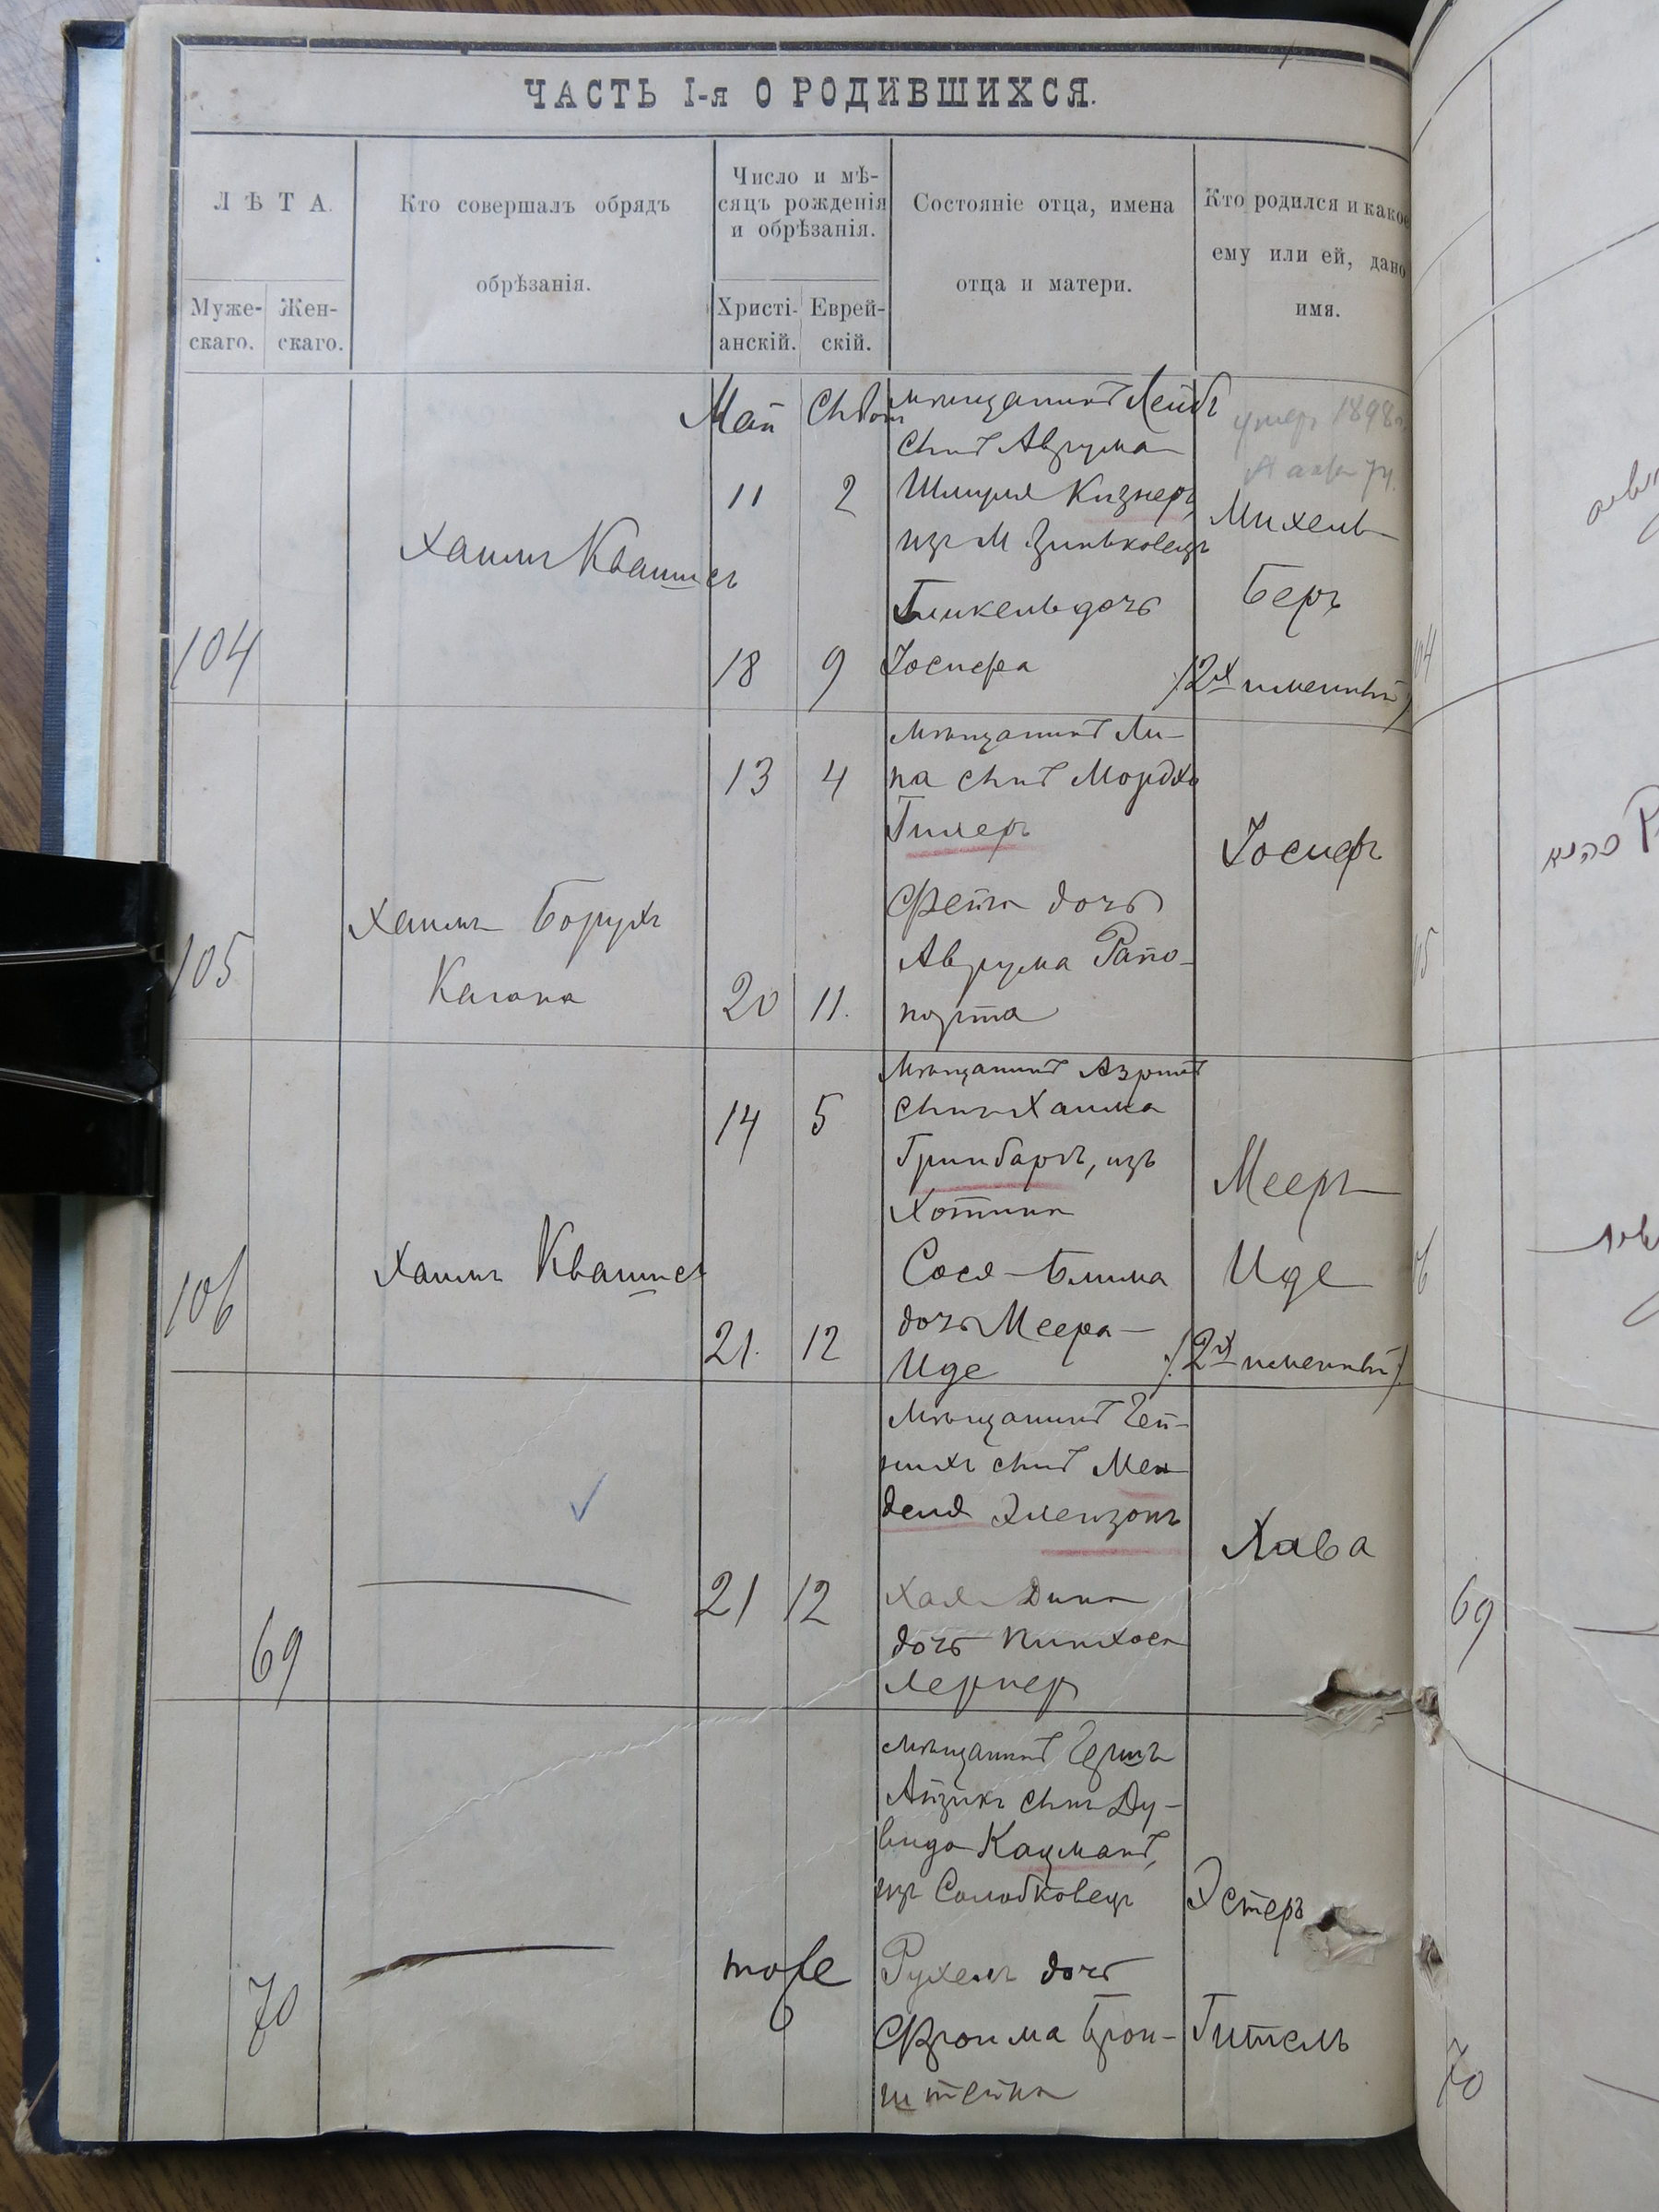 ЧАСТЬ I-я О РОДИВШИХСЯ.
ЛѢТА.
Муже-
скаго.
Жен-
скаго.
Кто совершалъ обрядъ
обрѣзанія.
Число и мѣ-
сяцъ рожденія
и обрѣзанія.
Христі-
анскій.
Еврей-
скій.
Состояніе отца, имена
отца и матери.
Кто родился и какое
ему или ей, дано
имя.
104
Хаимъ Квашисъ
Май
11
18
2
9
мѣщанинъ Лейбъ
сынъ Аврума
Шмуля Кизнеръ,
изъ М Зиньковецъ
дочь
Іосифа
умеръ 1898
Михель
Беръ
(2х именный)
105
Хаимъ Борухъ
Кагана
13
20
4
11.
Мѣщанинъ Ли-
па сынъ Мордхо
Гилеръ
Фейга дочь
Аврума Рапо-
порта
Іосифъ
106
Хаимъ Квашисъ
14
21.
5
12
Мѣщанинъ Азрилъ
сынъ Хаима
Гринбаргъ, изъ
Хотина
Сося-Блима
дочь Меера-
Иде
Мееръ
Иде
(2х именный).
69
21
12
Мѣщанинъ Гей-
нихъ сынъ Мен
деля
Хая Дина
дочь Пинхоса
Лернер
Хава
69
70
тоже
мѣщанинъ Гершъ
Айзикъ сынъ Ду-
вида Кацманъ,
изъ Солобковецъ
Рухель дочь
Фроима Брон-
штейна
Эстеръ
Гитель
70